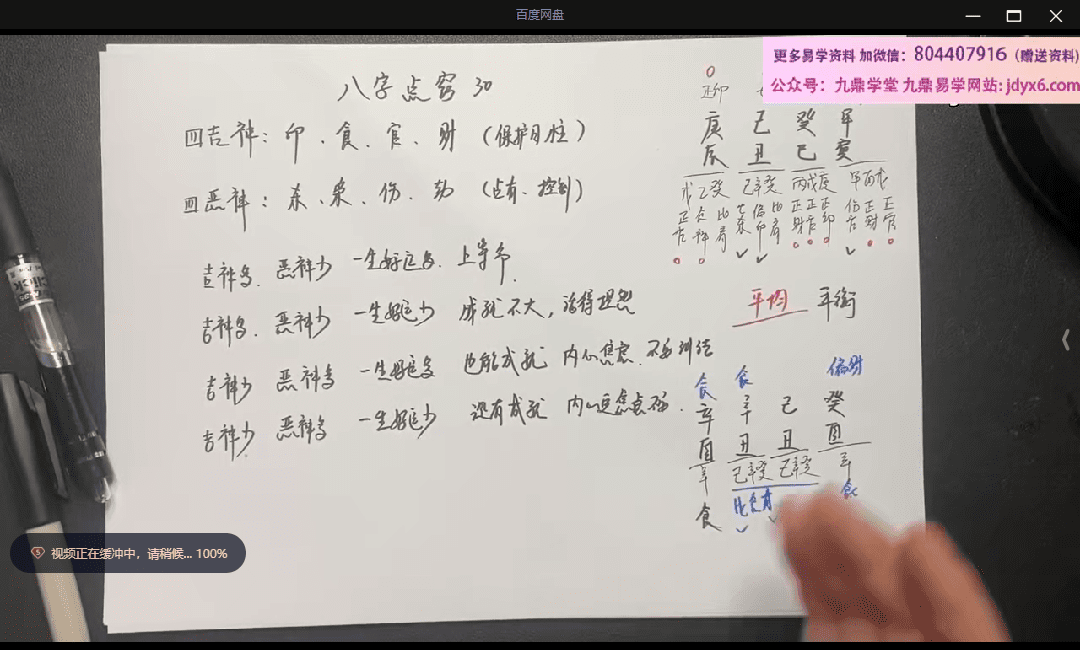 百度网盘
更多易学资料 加微信：804407916（赠送资料）
公众号：九鼎学堂 九鼎易学网站:jdyx6.com
八字点窍 30
四吉神：印、食、官、财（保护日柱）
四恶神：杀、枭、伤、劫（占有、控制）
吉神多. 恶神少 一生好运多. 上等命.
吉神多. 恶神少 一生好运少 成就不大，活得理想
吉神少 恶神多 一生好运多 也能成就 内心焦虑.
吉神少 恶神多 一生好运少 还有成就
正印
庚 己 癸 甲
辰 丑 巳 寅
戊乙癸 己辛癸 丙戊庚 甲丙戊
平均 平衡
食 食 偏财
辛 辛 己 癸
酉 丑 丑 酉
辛 己辛癸 己辛癸 辛
食 比食才 食
视频正在缓冲中，请稍候... 100%